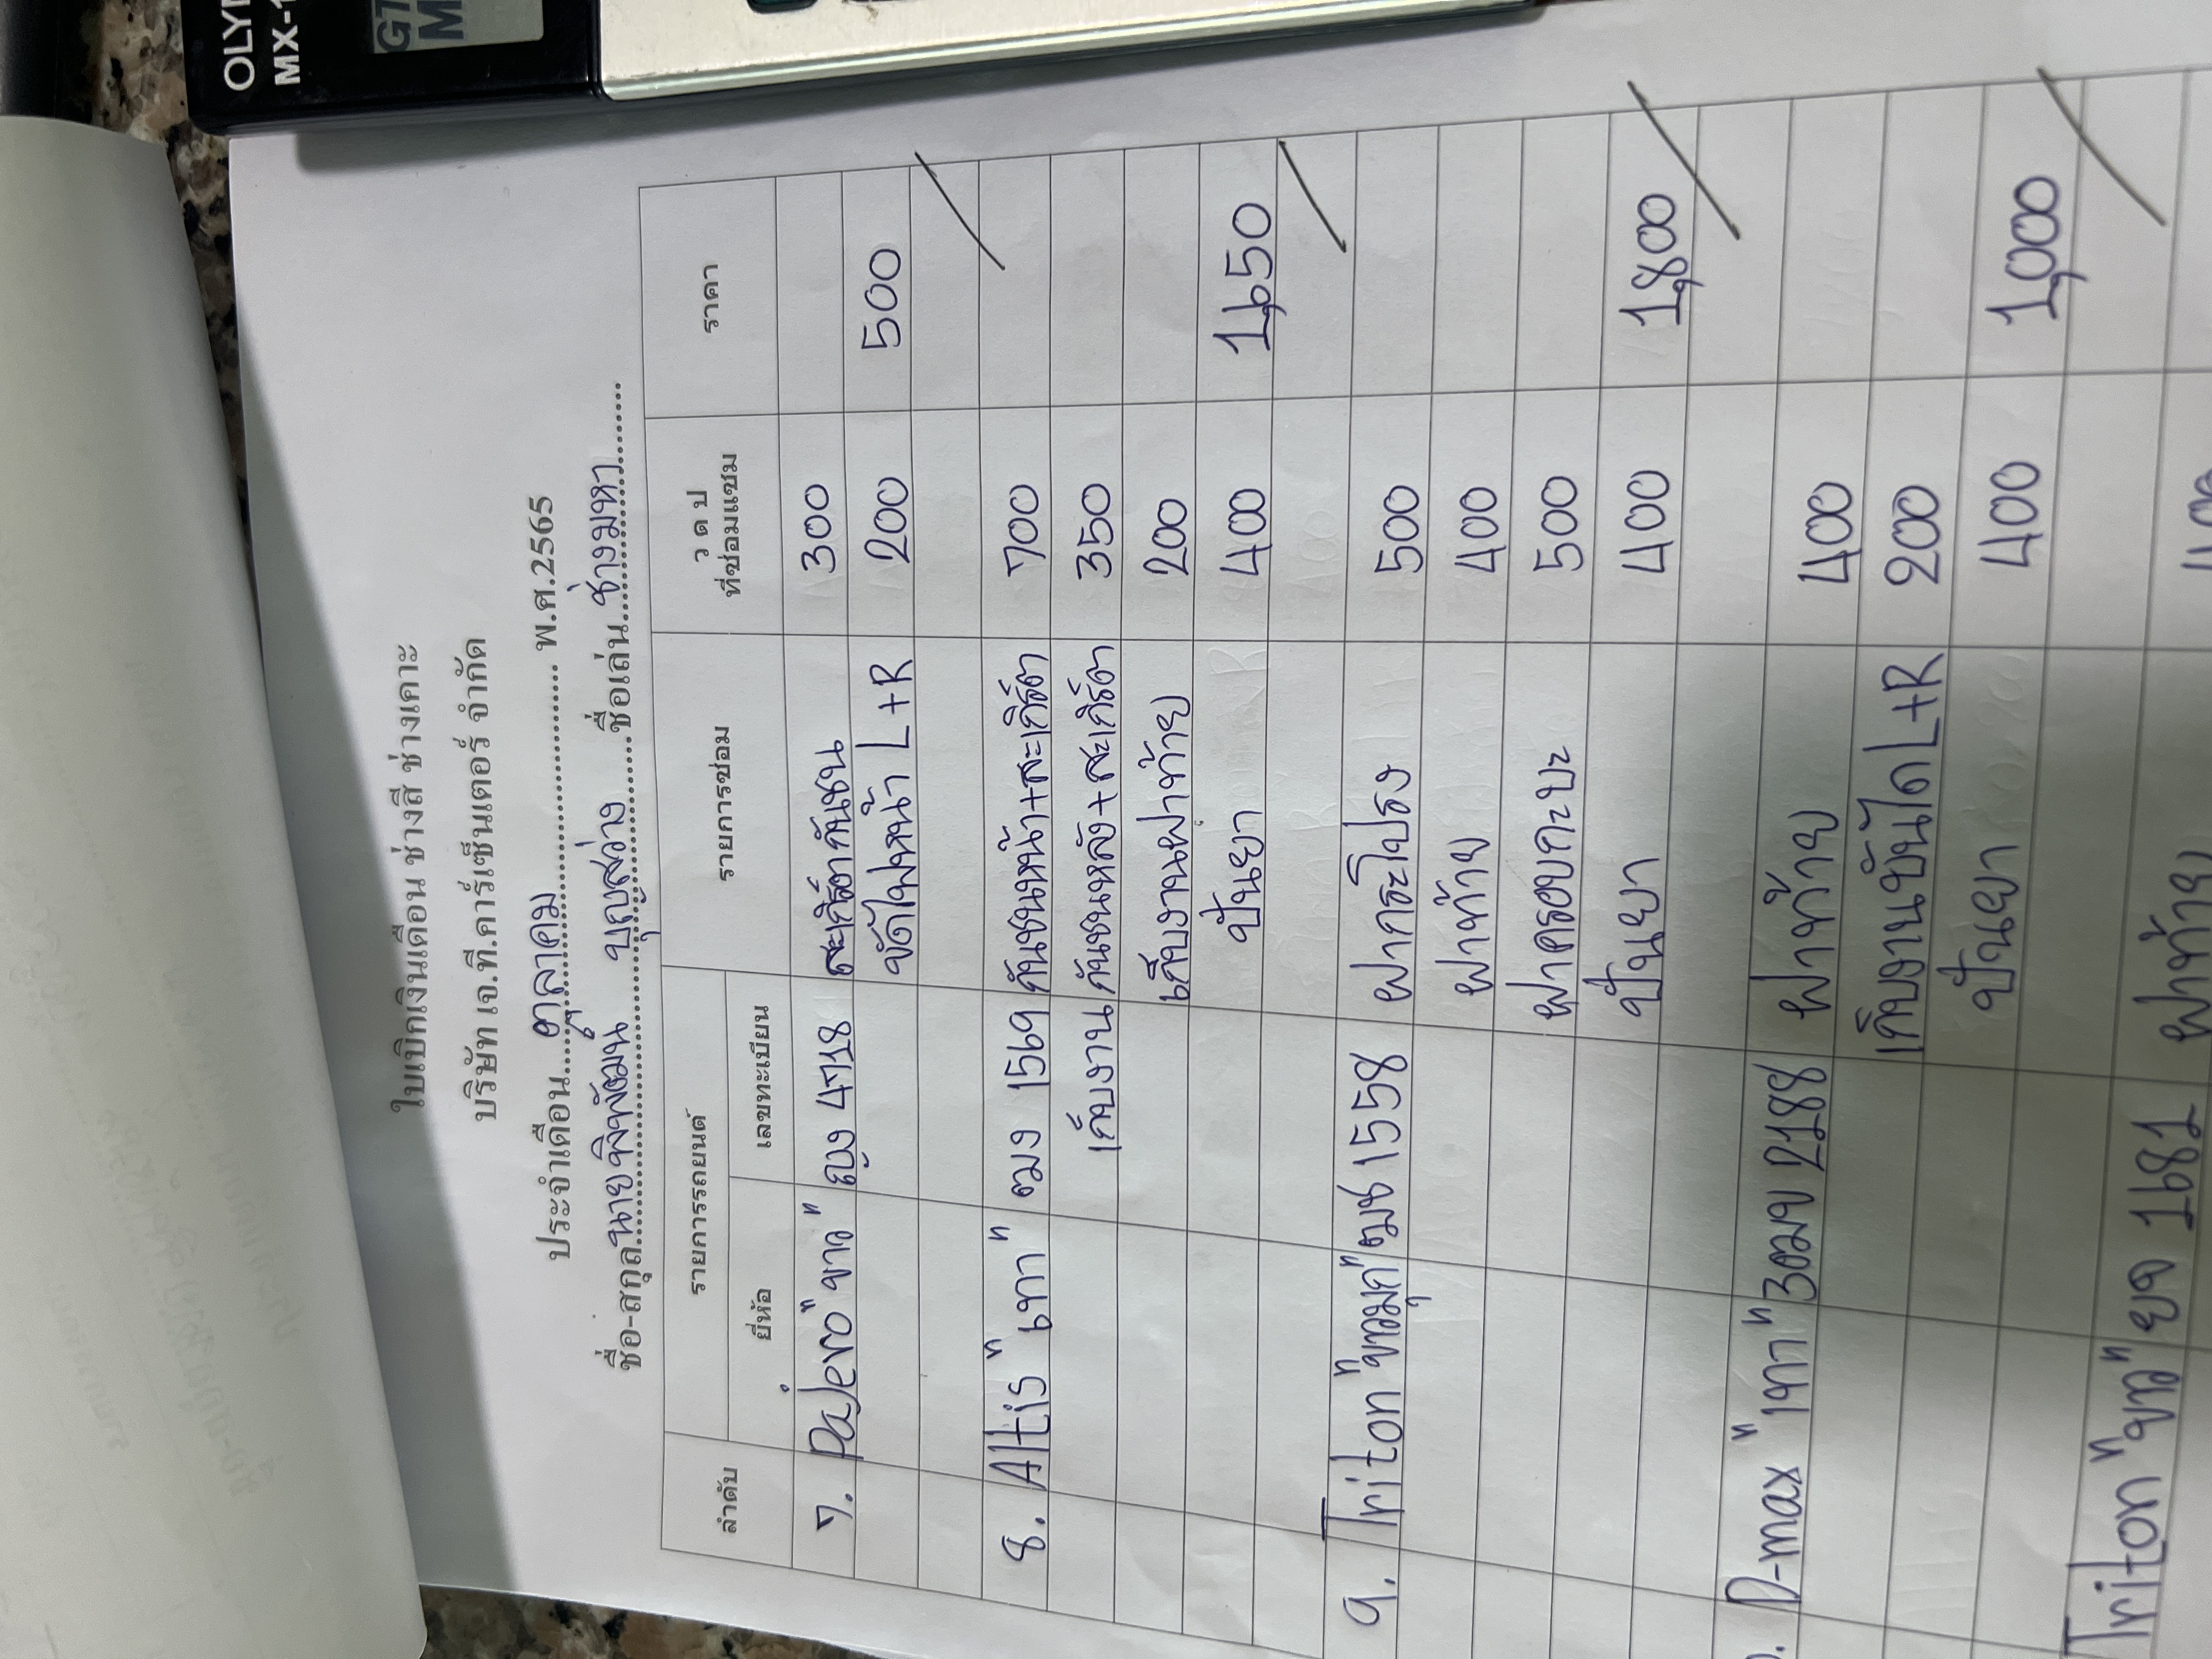 OLY
MX-1
GT
M
ใบเบิกเงินเดือน ช่างสี ช่างเคาะ
บริษัท เจ.ที.คาร์เซ็นเตอร์ จำกัด
ประจำเดือน ตุลาคม พ.ศ.2565
ชื่อ-สกุล นายพิพัฒน์ บุญสว่าง ชื่อเล่น ช่างมหา
ลำดับ รายการรถยนต์ รายการซ่อม ว ด ป ที่ซ่อมแซม ราคา
ยี่ห้อ เลขทะเบียน
7. Pajero "ขาว" 4718 สะเกิ๊ตกันชน 300
ขัดไฟหน้า L+R 200 500
8. Altis "เทา" ฆง 1569 กันชนหน้า+สะเกิ๊ต 700
เก็บงาน กันชนหลัง+สะเกิ๊ต 350
เก็บงานฝาท้าย 200
ปั่นยา 400 1,650
9. Triton "ขาวมุก" ฒช 1558 ฝากระโปรง 500
ฝาท้าย 400
ฝาครอบกะบะ 500
ปั่นยา 400 1,800
D-max "เทา" 3ฒข 2188 ฝาท้าย 400
เก็บงานบันได L+R 200
ปั่นยา 400 1,000
Triton "ขาว" ยจ 1681 ฝาท้าย 400